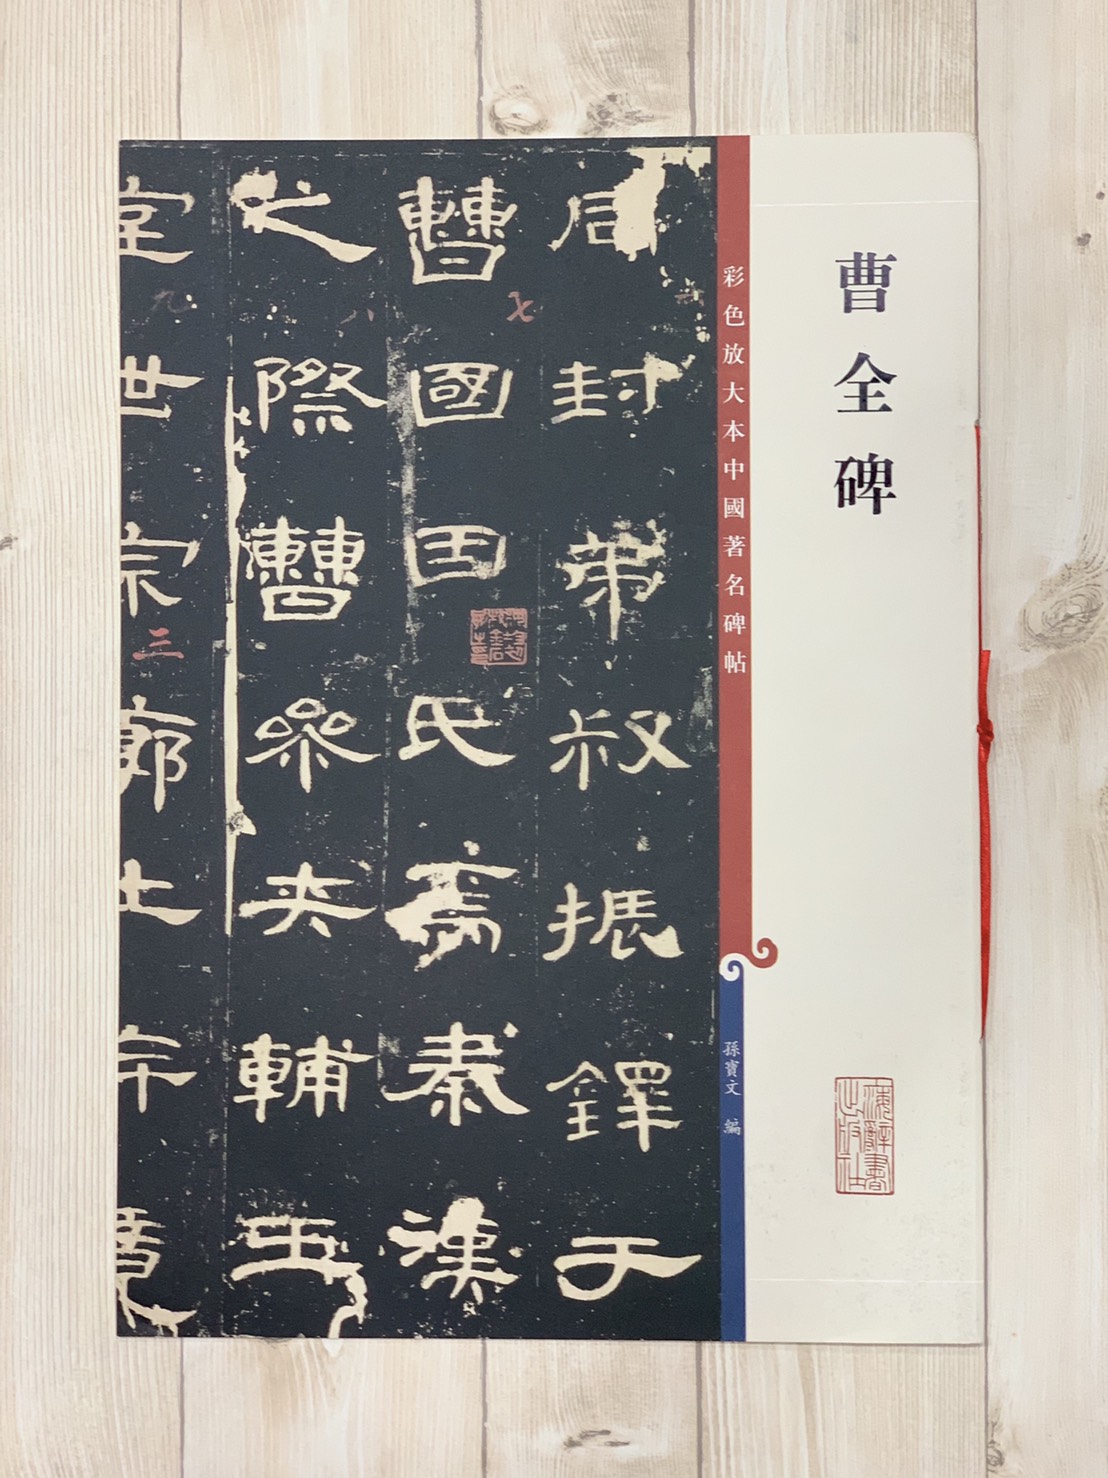 曹全碑
海辭書
出版社
彩色放大本中國著名碑帖
孫寶文 編
同封弟叔振鐸于
曹國因氏焉秦漢
之際曹參夾輔王
室世宗廓土斥竟
七
八
九
三